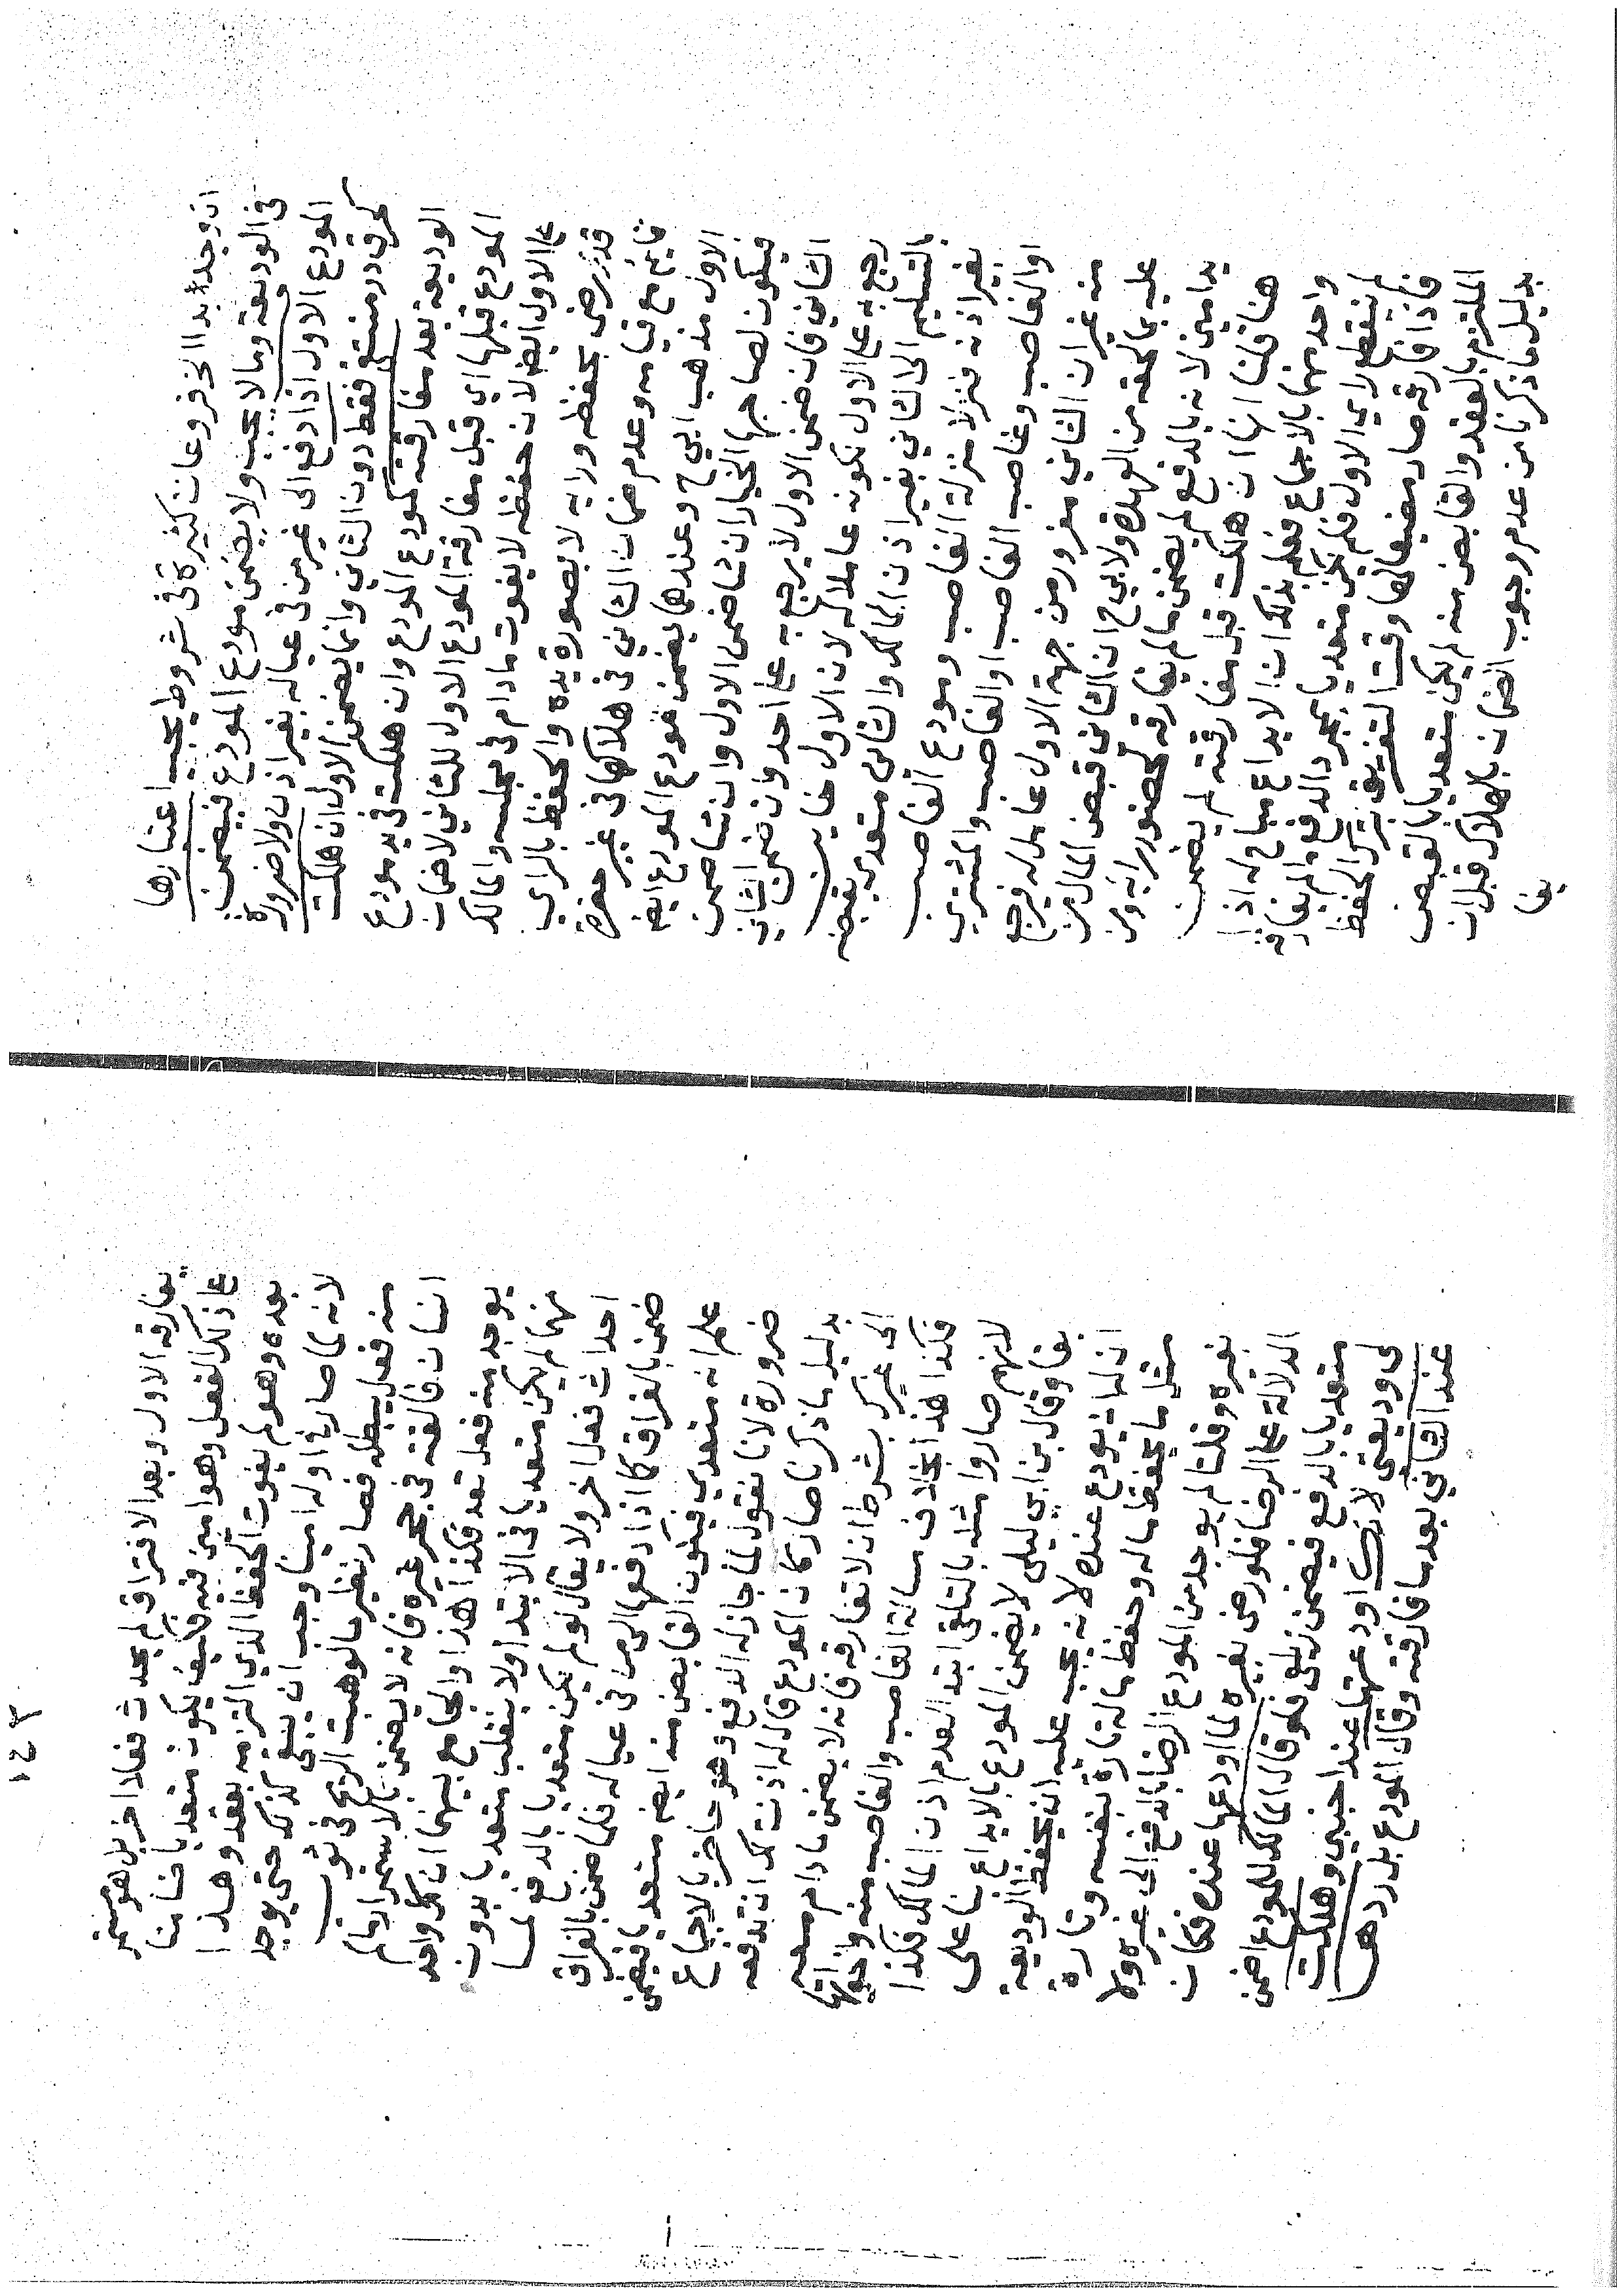 ان وجده ابدا الخ فروعات كثيرة في شروط يجب اعتبارها
في الوديعة وما لا يجب ولا يضمن مودع المودع فيضمن
المودع الاول اذا دفع الى غير من في عياله بغير اذن ولا ضرورة
كحرق در منتقى فقط دون الثاني وانما يضمن الاول ان هلكت
الوديعة بعد مفارقته كمودع المودع وان هلكت في يد مودع
المودع قبلها اي قبل مفارقة المودع الاول للثاني لا ضمان
على الاول ايضا لان حفظه لا يفوت ما دام في مجلسه والمالك
قد رضي بحفظه ورايه لا بصورة يده والحفظ بالراي
قايم مع قيامه وعدم ضمان الثاني في هلاكها في غير حضرة
الاول مذهب ابي ح وعندهما يضمن مودع المودع ايضا
فيكون لصاحبها الخيار ان شا ضمن الاول وان شا ضمن
الثاني فان ضمن الاول لا يرجع به على احد وان ضمن الثاني
رجع به على الاول لكونه عاملا له لان الاول خاين
بالتسليم الى الثاني بغير اذن المالك والثاني متعدي بقبضه
بغير اذنه فنزلا منزلة الغاصب ومودع الغاصب
او الغاصب وغاصب الغاصب او الغاصب والمشتري
منه غير ان الثاني مغرور من جهة الاول عامل له فيرجع
عليه بما لحقه من العهدة ولابي ح ان الثاني قبض المال من
يد امين لانه بالدفع لم يضمن ما لم يفارقه لحضور رايه ومن
هنا قلنا انها ان هلكت قبل مفارقته لم يضمن
واحد منهما بالاجماع فعلم بذلك ان الايداع مباح له اذا
لم ينقطع راي الاول فلم يكن متعديا بمجرد الدفع ما لم يفارقه
فاذا فارقه صار مضيعا لها وقت التفريق بترك الحفظ
الملتزم بالعقد والقابض منه لم يكن متعديا بالقبض
بدليل ما ذكرنا من عدم وجوب الضمان بالهلاك قبل ان
يفا
١٤٢
يفارقه الاول وبعد الافتراق لم يحدث فعلا اخر بل هو مستمر
على ذلك الفعل وهو امين فيه فكيف يكون متعديا ضامنا
بعده وهو لم يفوت الحفظ الذي التزمه بعقد وهذا
لانه لما صار في اوله امينا وجب ان يبقى كذلك حتى يوجد
منه فعل يبطله فصار نظير ما لو هبت الريح في ثوب
انسان فالقته في حجر غيره فانه لا يضمن بالاستمرار ما لم
يوجد منه فعل تعد فكذا هذا والجامع بينهما ان كل واحد
منهما لم يكن متعديا في الابتدا ولا ينقلب متعديا بدون
احداث فعل اخر ولا يقال لو لم يكن متعديا بالدفع لما
ضمن بالفراق كما اذا دفعها الى من في عياله فلما ضمن بالفراق
علم انه متعدي فيكون القابض منه ايضا متعديا فيضمن
ضرورة لانا نقول لما جاز له الدفع وهو حاضر بالاجماع
بدليل ما ذكرنا صار كان المودع قال له اذنت لك ان تدفعه
الى غيرك بشرط ان لا تفارقه فانه لا يضمن ما دام معه
فكذا هذا بخلاف مسالة الغاصب والغاصب منه واخواتها
لانهم صاروا مثله بالتلقي ابتدا لعدم اذن المالك فكذا
بقا وقال بن ابي ليلى لا يضمن المودع بالايداع بنا على
ان له ان يودع عنده لانه يجب عليه ان يحفظ الوديعة
مثل ما يحفظ ماله وحفظ ماله تارة بنفسه وتارة
بغيره وقلنا لم يوجد من المودع الرضا بالدفع الى غيره ولا
الدلالة على الرضا فلو رضي بغيره لما اودعها عنده فكان
متعديا بالدفع فيضمن زيلعي فلو قال المالك للمودع اضمن
لي وديعتي لانك اودعتها عند اجنبي وهلكت
عند الثاني بعد ما فارقته وقال المودع بل ردها